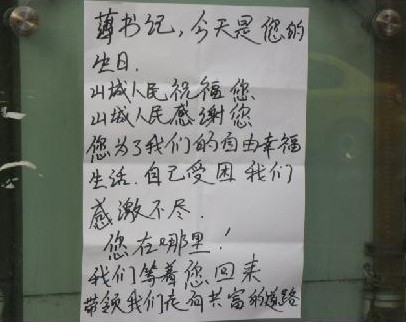 薄书记，今天是您的
生日.
山城人民祝福您
山城人民感谢您
您为了我们的自由幸福
生活.自己受困 我们
感激不尽.
您在哪里！
我们等着您回来
带领我们走向共富的道路